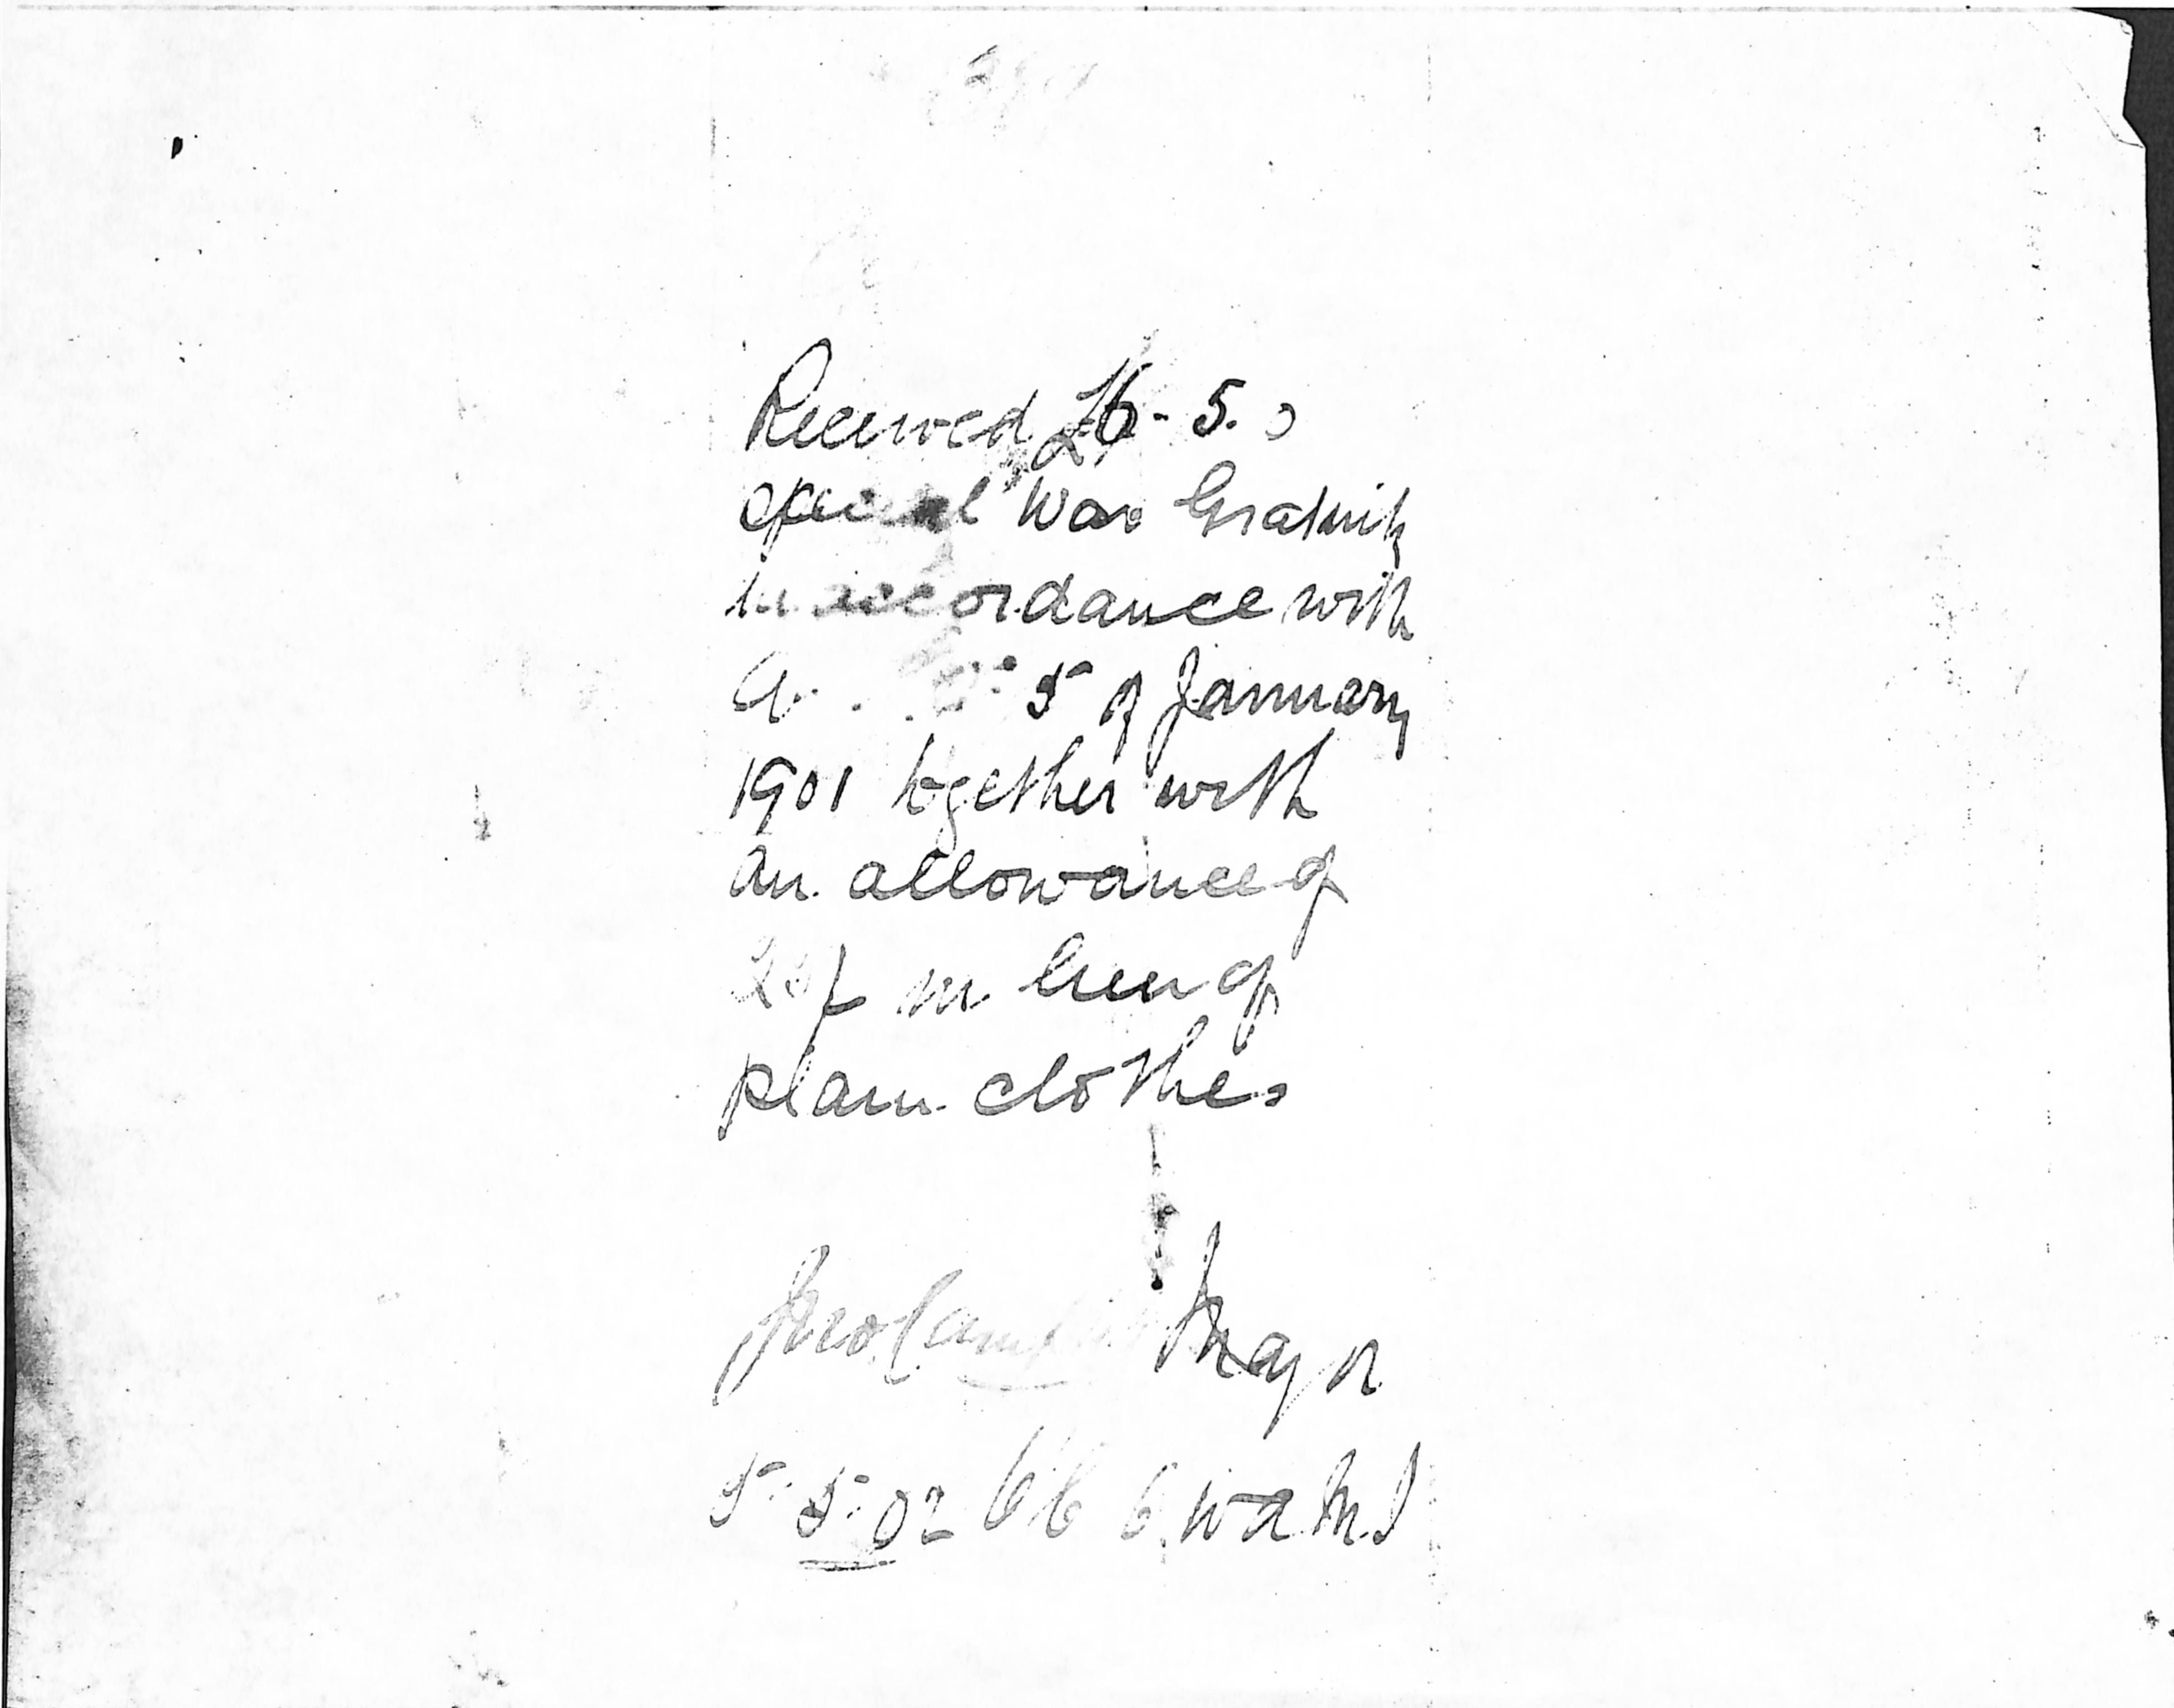 Received £6-5.0
special War Gratuity
in accordance with
A. 5 of January
1901 together with
an allowance of
in lieu of
plain clothes
Major
5.5.02 W A M I